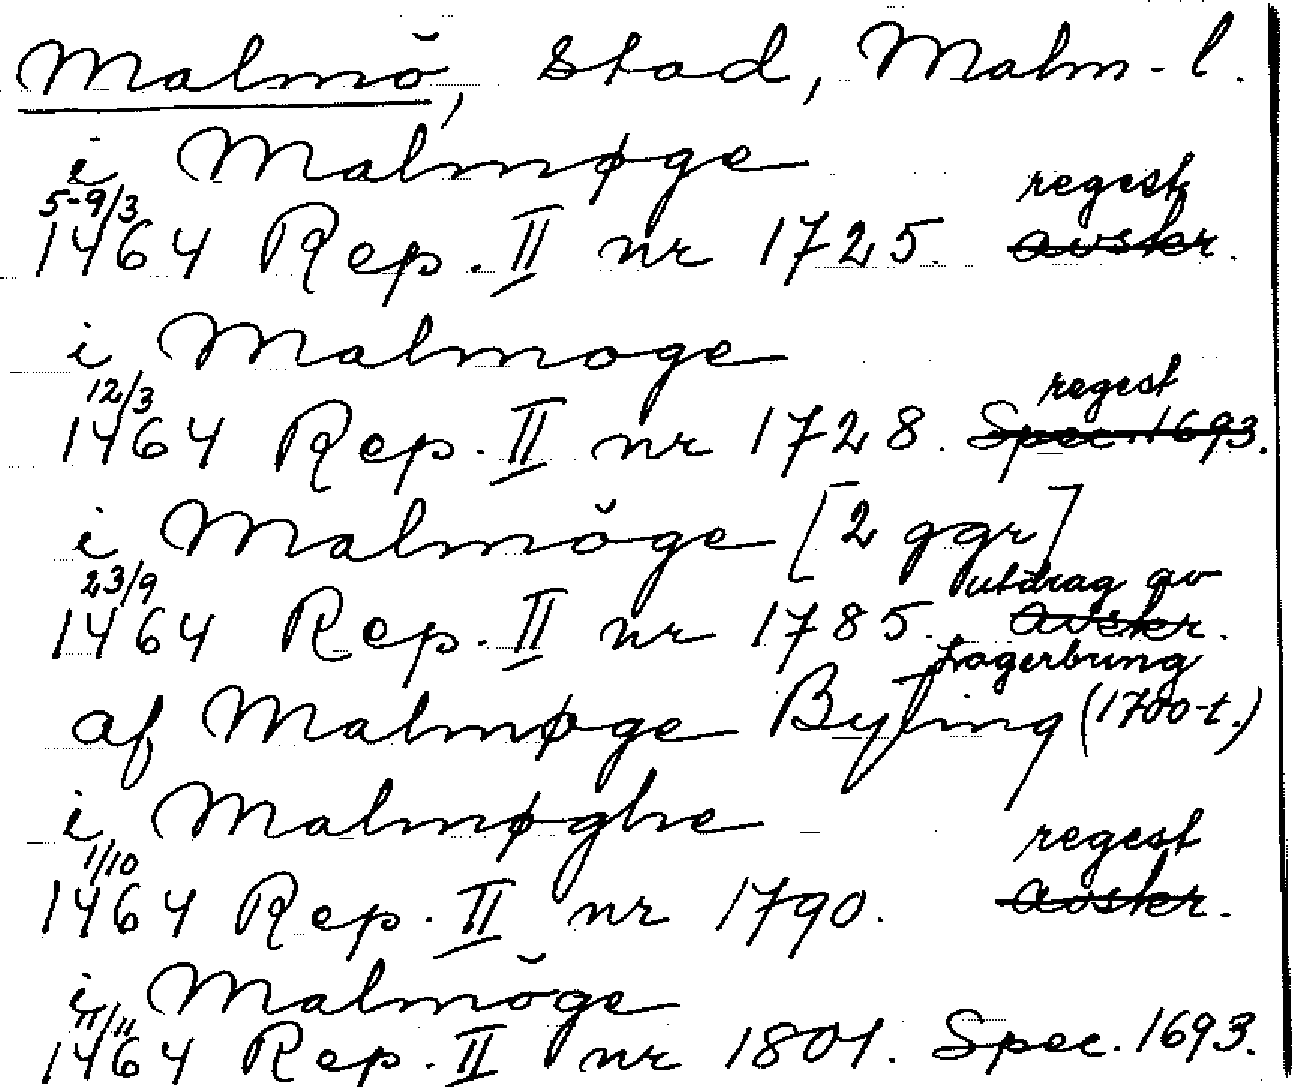 Malmö, stad, Malm-l.
i Malmøge
5-9/3 regest
1464 Rep. II nr 1725. avskr.
i Malmoge
12/3 regest
1464 Rep. II nr 1728. Spec. 1693.
i Malmöge [2 ggr]
23/9 utdrag av
1464 Rep. II nr 1785. avskr.
Lagerbring
af Malmøge Byting (1700-t.)
i Malmøghe
1/10 regest
1464 Rep. II nr 1790. avskr.
i Malmöge
11/11
1464 Rep. II nr 1801. Spec. 1693.